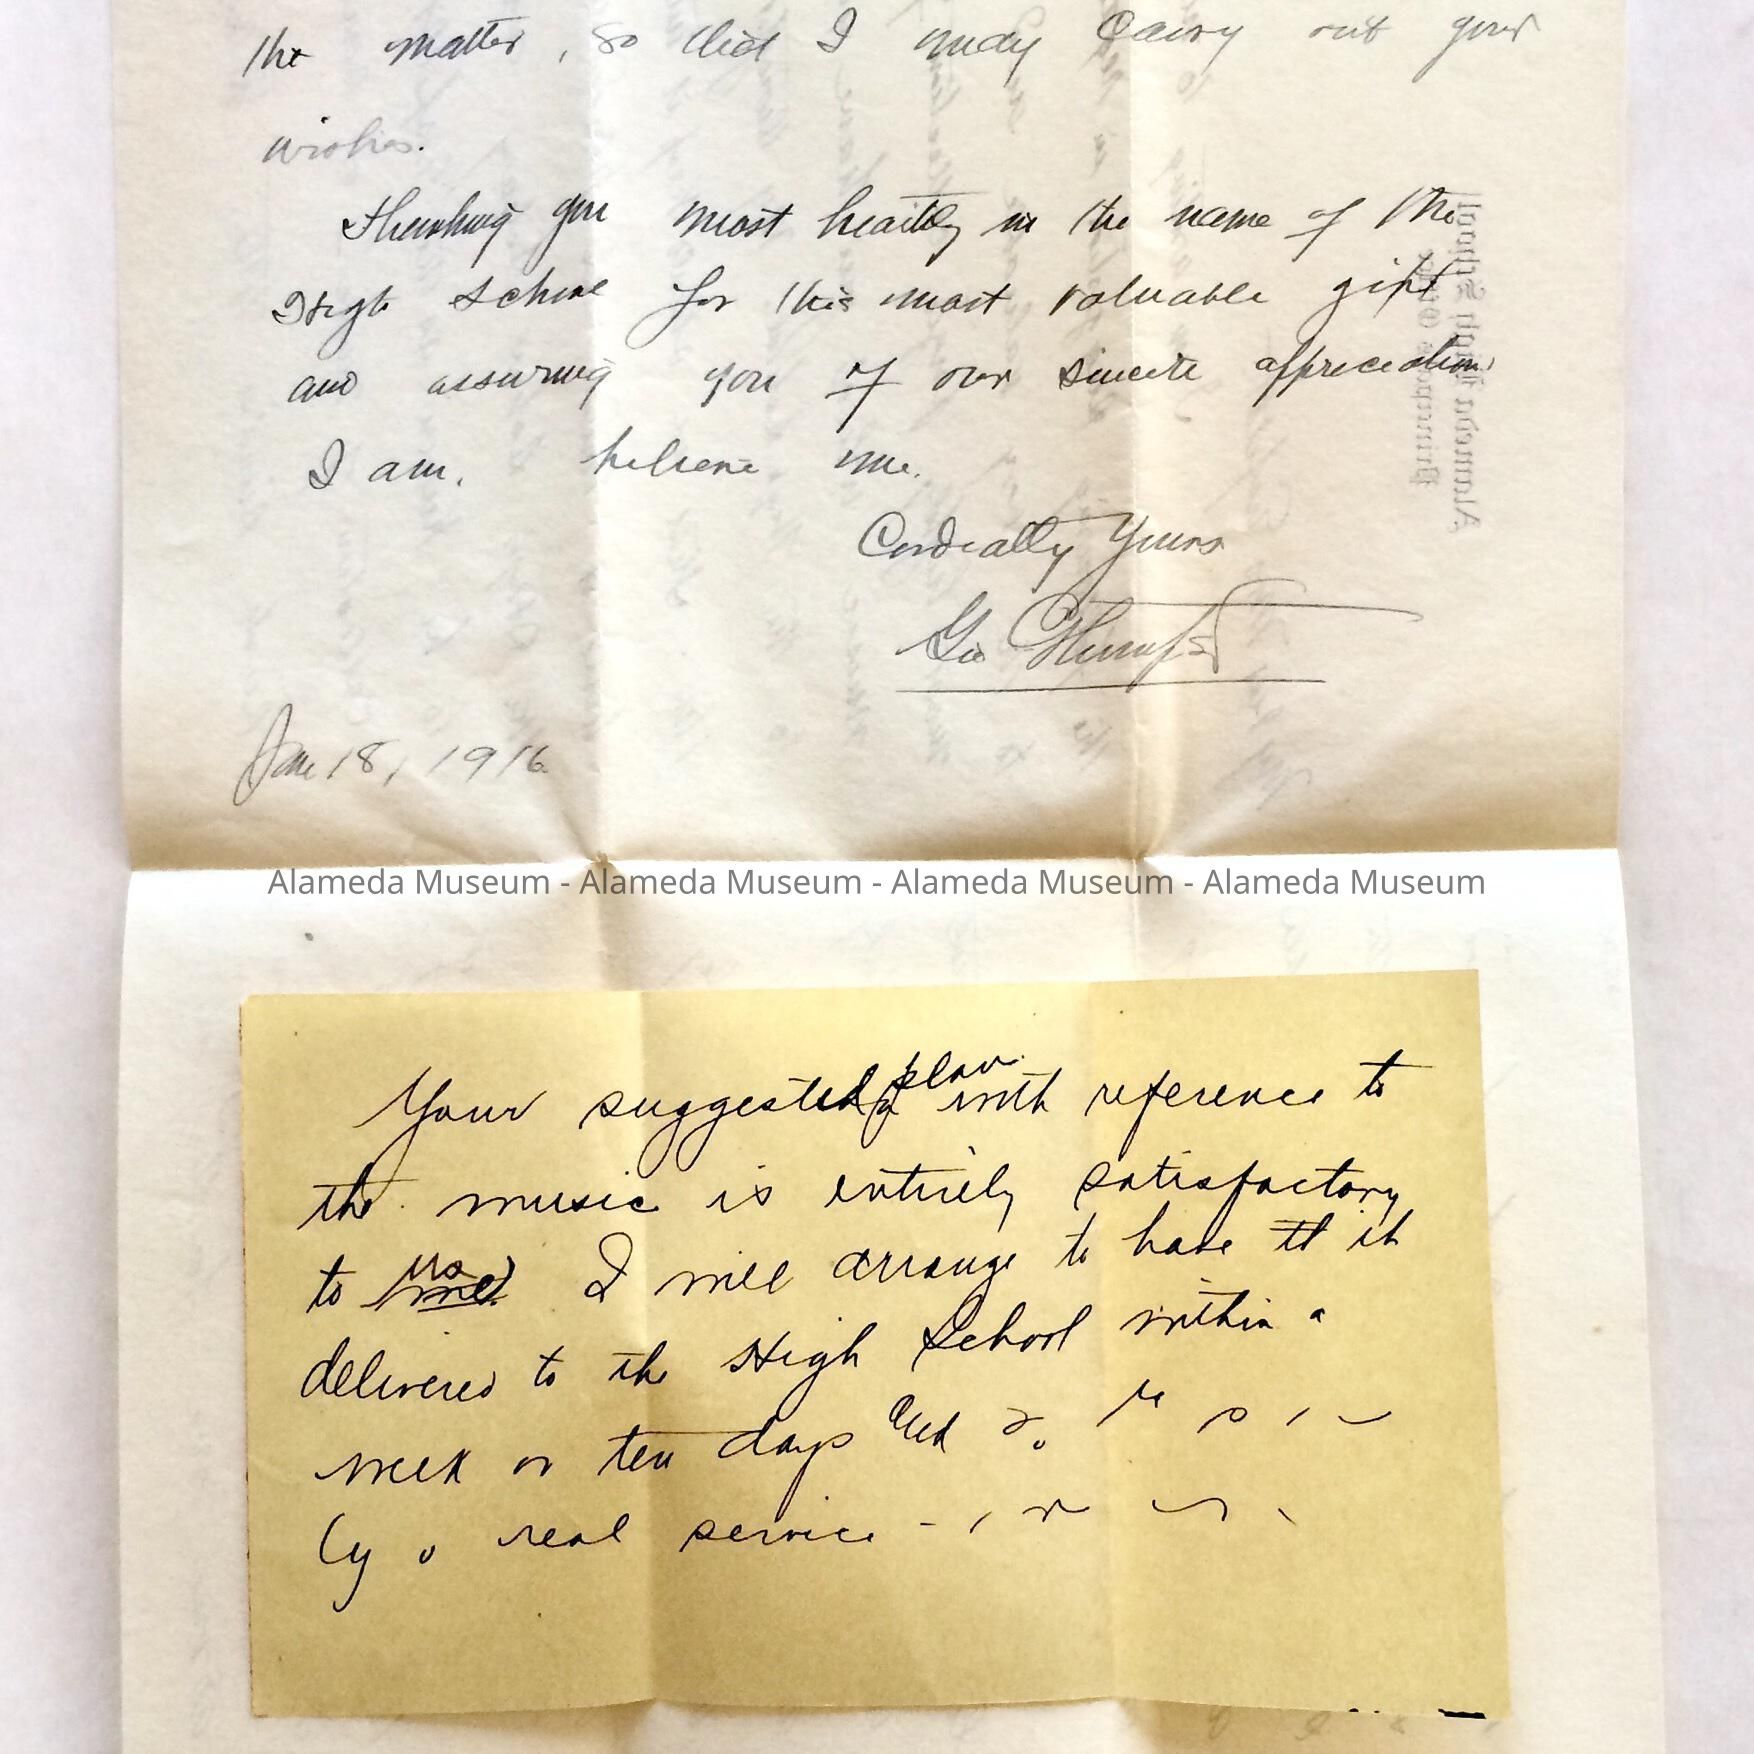 the matter, so that I may carry out your
wishes.
Thanking you most heartily in the name of the
High School for this most valuable gift
and assuring you of our sincere appreciation
I am, believe me.
Cordially Yours
Geo
Jan 18, 1916
Alameda Museum - Alameda Museum - Alameda Museum - Alameda Museum
Your suggested plan with reference to
the music is entirely satisfactory
to us I will arrange to have it
delivered to the High School within a
week or ten days
real service
Alameda High School